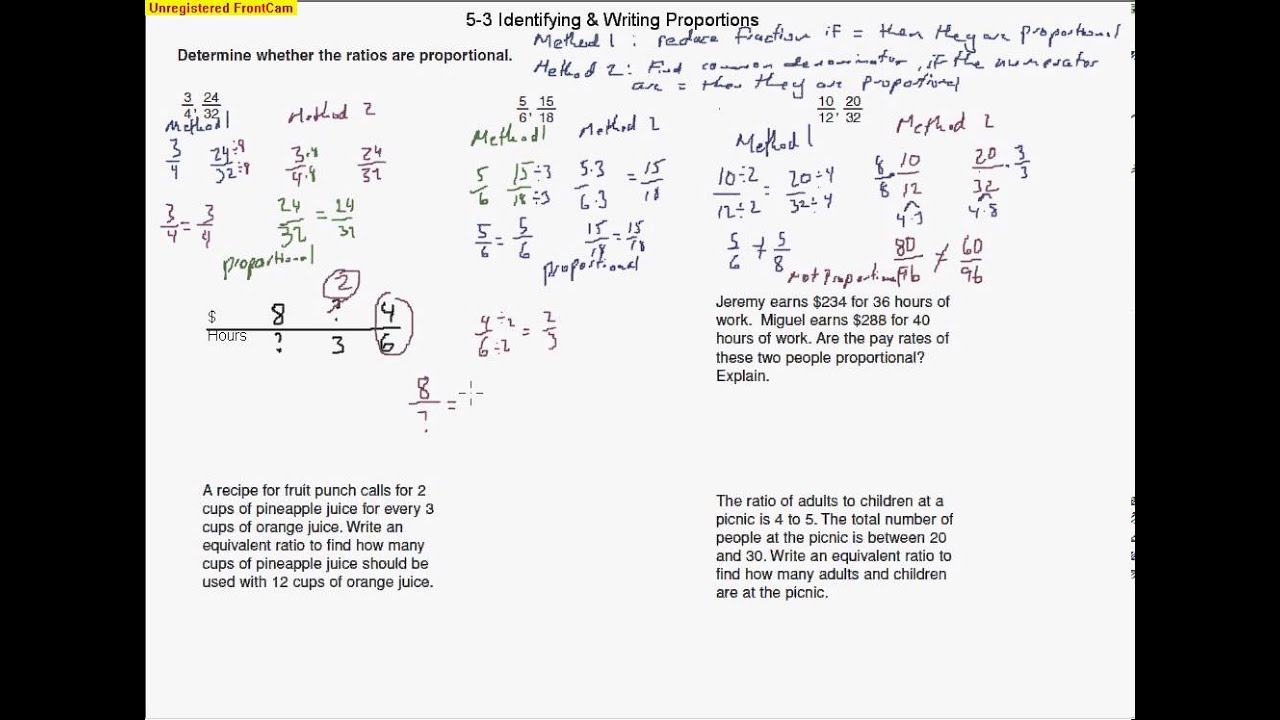 Unregistered FrontCam
5-3 Identifying & Writing Proportions
Method 1: reduce fraction if = then they are proportional
Determine whether the ratios are proportional.
Method 2: Find common denominator, if the numerator
are = then they are proportional
3/4, 24/32
Method 1
Method 2
3/4 24÷8/32÷8
3·8/4·8 24/32
3/4 = 3/4
24/32 = 24/32
proportional
5/6, 15/18
Method 1
Method 2
5/6 15÷3/18÷3
5·3/6·3 = 15/18
5/6 = 5/6
15/18 = 15/18
proportional
10/12, 20/32
Method 1
Method 2
10÷2/12÷2 = 20÷4/32÷4
8/8 · 10/12 20/32 · 3/3
4·3 4·8
5/6 ≠ 5/8
80/96 ≠ 60/96
Not Proportional
2
$ 8 ? 4
Hours ? 3 6
4÷2/6÷2 = 2/3
8/? =
Jeremy earns $234 for 36 hours of
work. Miguel earns $288 for 40
hours of work. Are the pay rates of
these two people proportional?
Explain.
A recipe for fruit punch calls for 2
cups of pineapple juice for every 3
cups of orange juice. Write an
equivalent ratio to find how many
cups of pineapple juice should be
used with 12 cups of orange juice.
The ratio of adults to children at a
picnic is 4 to 5. The total number of
people at the picnic is between 20
and 30. Write an equivalent ratio to
find how many adults and children
are at the picnic.